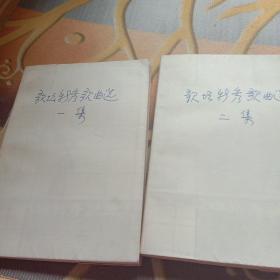 歌坛新秀歌曲选
一集
歌坛新秀歌曲选
二集